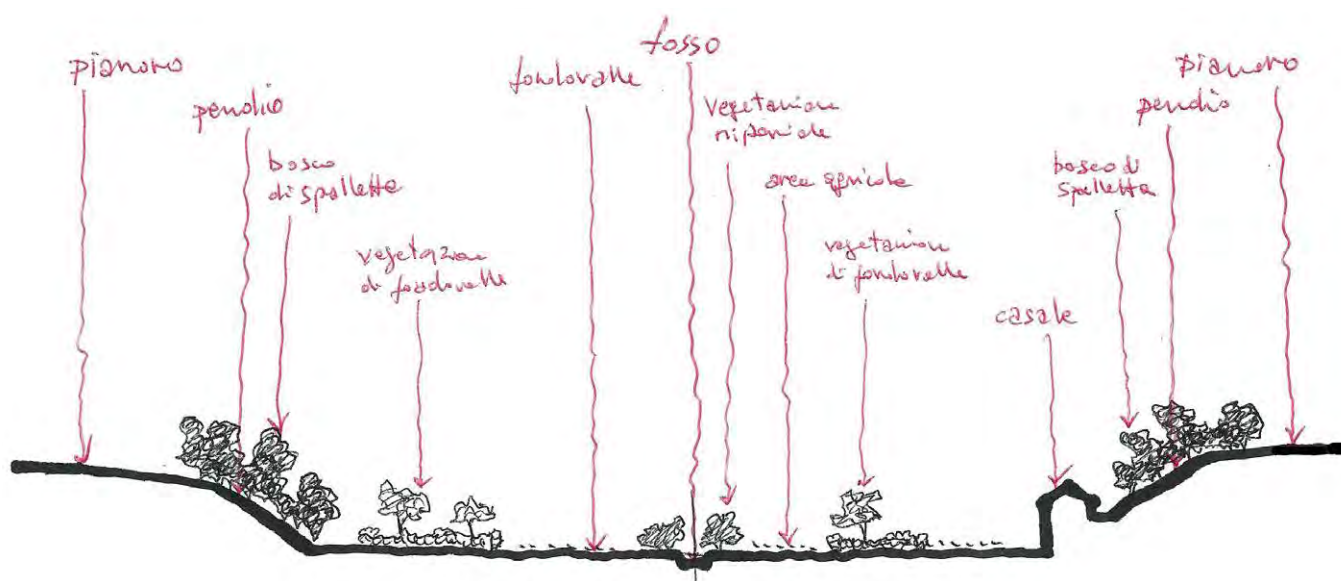 pianoro
pendio
bosco
di spalletta
vegetazione
di fondovalle
fondovalle
fosso
vegetazione
ripariale
aree agricole
vegetazione
di fondovalle
casale
bosco di
spalletta
pendio
pianoro